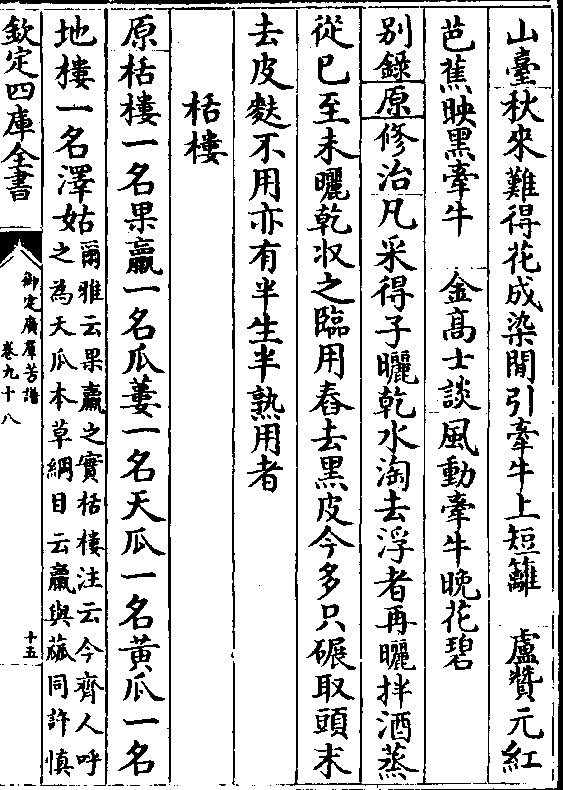 山臺秋來難得花成染閒引牽牛上短籬　盧贊元紅
芭蕉映黑牽牛　金高士談風動牽牛晚花碧
别錄原修治凡采得子曬乾水淘去浮者再曬拌酒蒸
從巳至未曬乾收之臨用舂去黑皮今多只碾取頭末
去皮麩不用亦有半生半熟用者
栝樓
原栝樓一名果臝一名瓜蔞一名天瓜一名黃瓜一名
地樓一名澤姑爾雅云果臝之實栝樓注云今齊人呼
之為天瓜本草綱目云臝與蓏同許慎
欽定四庫全書
御定廣羣芳譜
卷九十八
十五